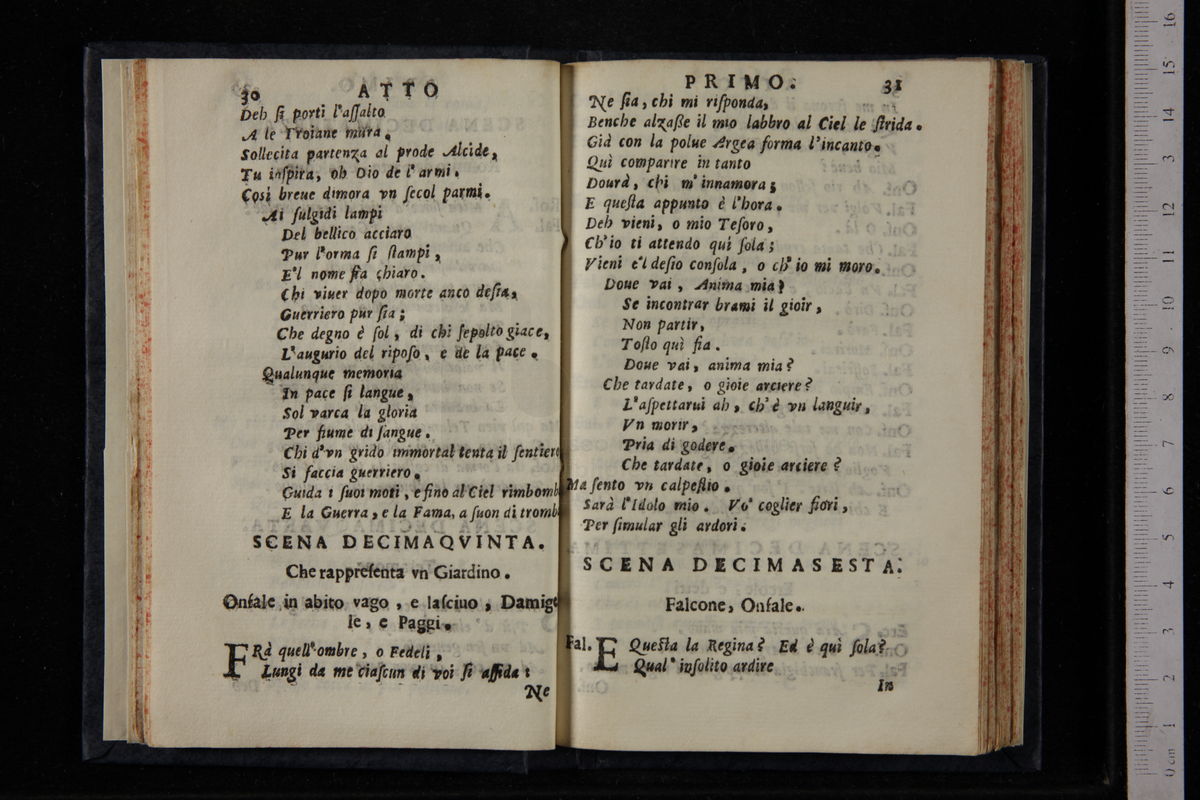 30 ATTO
Deh ſi porti l'aſſalto
A le Troiane mura.
Sollecita partenza al prode Alcide,
Tu inſpira, oh Dio de l'armi.
Così breue dimora vn ſecol parmi.
Ai fulgidi lampi
Del bellico acciaro
Pur l'orma ſi ſtampi,
E'l nome ſia chiaro.
Chi viuer dopo morte anco deſia,
Guerriero pur ſia;
Che degno è ſol, di chi ſepolto giace,
L'augurio del ripoſo, e de la pace.
Qualunque memoria
In pace ſi langue,
Sol varca la gloria
Per fiume di ſangue.
Chi d'vn grido immortal tenta il ſentiero
Si faccia guerriero.
Guida i ſuoi moti, e fino al Ciel rimbomb
E la Guerra, e la Fama, a ſuon di tromb
SCENA DECIMAQVINTA.
Che rappreſenta vn Giardino.
Onfale in abito vago, e laſciuo, Damige
le, e Paggi.
FRà quell'ombre, o Fedeli,
Lungi da me ciaſcun di voi ſi aſſida:
Ne
PRIMO. 31
Ne ſia, chi mi riſponda,
Benche alzaße il mio labbro al Ciel le ſtrida.
Già con la polue Argea forma l'incanto.
Quì comparire in tanto
Dourà, chi m'innamora;
E queſta appunto è l'hora.
Deh vieni, o mio Teſoro,
Ch'io ti attendo quì ſola;
Vieni e'l deſio conſola, o ch'io mi moro.
Doue vai, Anima mia?
Se incontrar brami il gioir,
Non partir,
Toſto quì ſia.
Doue vai, anima mia?
Che tardate, o gioie arciere?
L'aſpettarui ah, ch'è vn languir,
Vn morir,
Pria di godere.
Che tardate, o gioie arciere?
Ma ſento vn calpeſtio.
Sarà l'Idolo mio. Vo' coglier fiori,
Per ſimular gli ardori.
SCENA DECIMASESTA.
Falcone, Onfale.
Fal. E Queſta la Regina? Ed è quì ſola?
Qual'inſolito ardire
In
16
15
14
13
12
11
10
9
8
7
6
5
4
3
2
1
0 cm